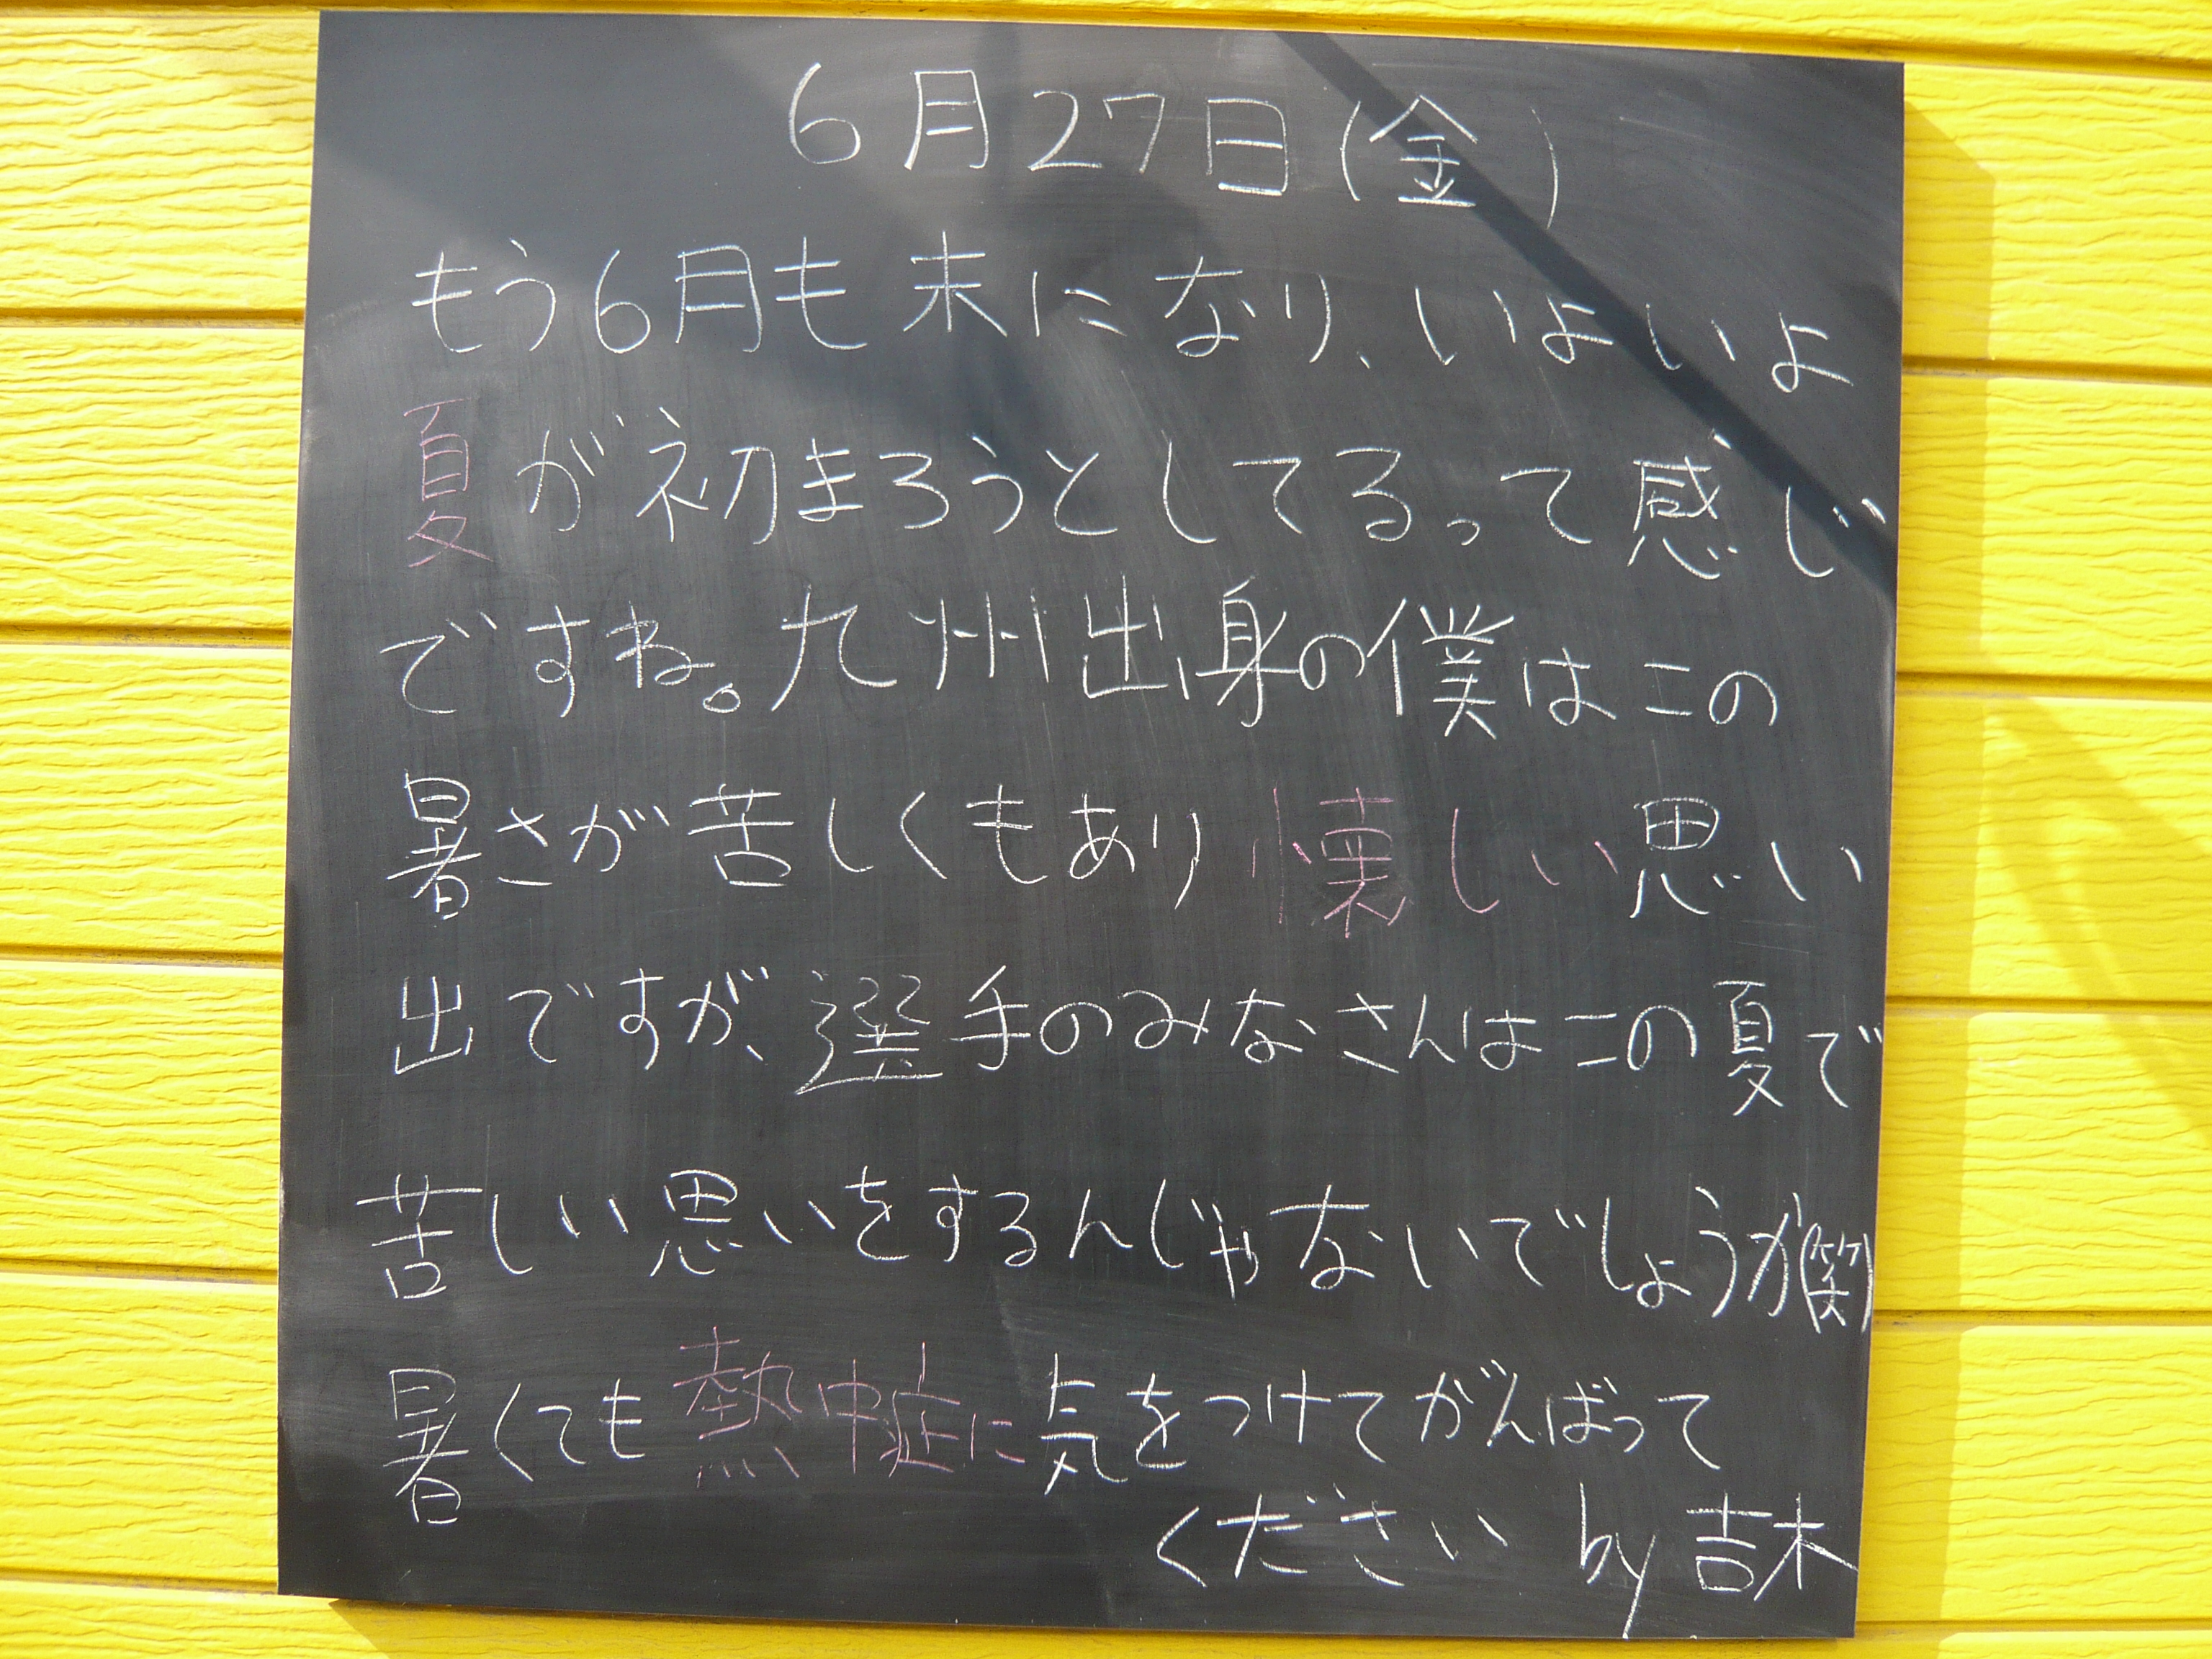 6月27日(金)
もう6月も末になり、いよいよ
夏が初まろうとしてるって感じ
ですね。九州出身の僕はこの
暑さが苦しくもあり懐しい思い
出ですが、選手のみなさんはこの夏で
苦しい思いをするんじゃないでしょうか(笑)
暑くても熱中症に気をつけてがんばって
ください by 吉木